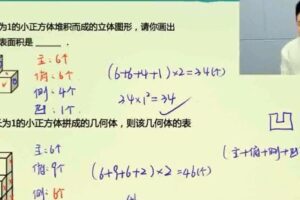 为1的小正方体堆积而成的立体图形，请你画出
表面积是______.
主：6个
俯：6个
侧：4个
凹：1个
(6+6+4+1)×2=34(个)
34×1²=34
长为1的小正方体拼成的几何体，则该几何体的表
主：6个
俯：9个
侧：6个
(6+9+6+2)×2=46(个)
(主+俯+侧+凹